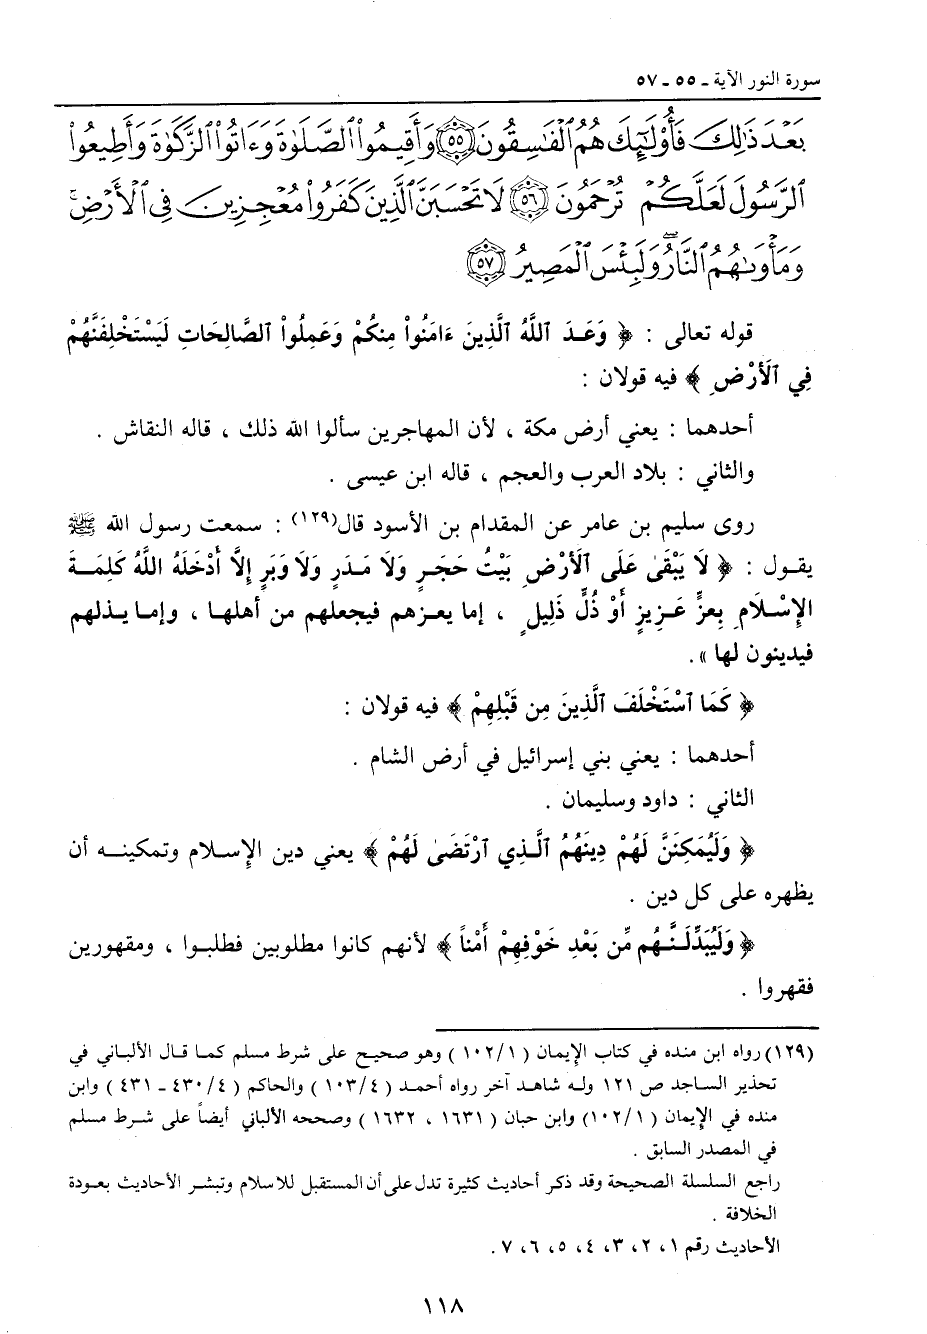 سورة النور الآية ـ ٥٥ ـ ٥٧
بَعْدَ ذَٰلِكَ فَأُوْلَٰٓئِكَ هُمُ ٱلْفَٰسِقُونَ ٥٥ وَأَقِيمُواْ ٱلصَّلَوٰةَ وَءَاتُواْ ٱلزَّكَوٰةَ وَأَطِيعُواْ
ٱلرَّسُولَ لَعَلَّكُمْ تُرْحَمُونَ ٥٦ لَا تَحْسَبَنَّ ٱلَّذِينَ كَفَرُواْ مُعْجِزِينَ فِى ٱلْأَرْضِ
وَمَأْوَىٰهُمُ ٱلنَّارُ وَلَبِئْسَ ٱلْمَصِيرُ ٥٧
قوله تعالى : ﴿ وَعَدَ اللَّهُ ٱلَّذِينَ ءَامَنُواْ مِنكُمْ وَعَمِلُواْ ٱلصَّالِحَاتِ لَيَسْتَخْلِفَنَّهُمْ
فِي ٱلْأَرْضِ ﴾ فيه قولان :
أحدهما : يعني أرض مكة ، لأن المهاجرين سألوا الله ذلك ، قاله النقاش .
والثاني : بلاد العرب والعجم ، قاله ابن عيسى .
روى سليم بن عامر عن المقدام بن الأسود قال(١٢٩) : سمعت رسول الله ﷺ
يقول : ﴿ لَا يَبْقَىٰ عَلَى ٱلْأَرْضِ بَيْتُ حَجَرٍ وَلَا مَدَرٍ وَلَا وَبَرٍ إِلَّا أَدْخَلَهُ اللَّهُ كَلِمَةَ
الإِسْلَامِ بِعزِّ عَزِيزٍ أَوْ ذُلِّ ذَلِيلٍ ، إما يعزهم فيجعلهم من أهلها ، وإما يذلهم
فيدينون لها » .
﴿ كَمَا ٱسْتَخْلَفَ ٱلَّذِينَ مِن قَبْلِهِمْ ﴾ فيه قولان :
أحدهما : يعني بني إسرائيل في أرض الشام .
الثاني : داود وسليمان .
﴿ وَلَيُمَكِنَنَّ لَهُمْ دِينَهُمُ ٱلَّذِي ٱرْتَضَىٰ لَهُمْ ﴾ يعني دين الإسلام وتمكينه أن
يظهره على كل دين .
﴿ وَلَيُبَدِّلَنَّهُم مِّن بَعْدِ خَوْفِهِمْ أَمْناً ﴾ لأنهم كانوا مطلوبين فطلبوا ، ومقهورين
فقهروا .
(١٢٩) رواه ابن منده في كتاب الإيمان ( ١٠٢/١ ) وهو صحيح على شرط مسلم كما قال الألباني في
تحذير الساجد ص ١٢١ وله شاهد آخر رواه أحمد ( ١٠٣/٤ ) والحاكم ( ٤٣٠/٤ ـ ٤٣١ ) وابن
منده في الإيمان ( ١٠٢/١ ) وابن حبان ( ١٦٣١ ، ١٦٣٢ ) وصححه الألباني أيضاً على شرط مسلم
في المصدر السابق .
راجع السلسلة الصحيحة وقد ذكر أحاديث كثيرة تدل على أن المستقبل للاسلام وتبشر الأحاديث بعودة
الخلافة .
الأحاديث رقم ١ ، ٢ ، ٣ ، ٤ ، ٥ ، ٦ ، ٧ .
١١٨